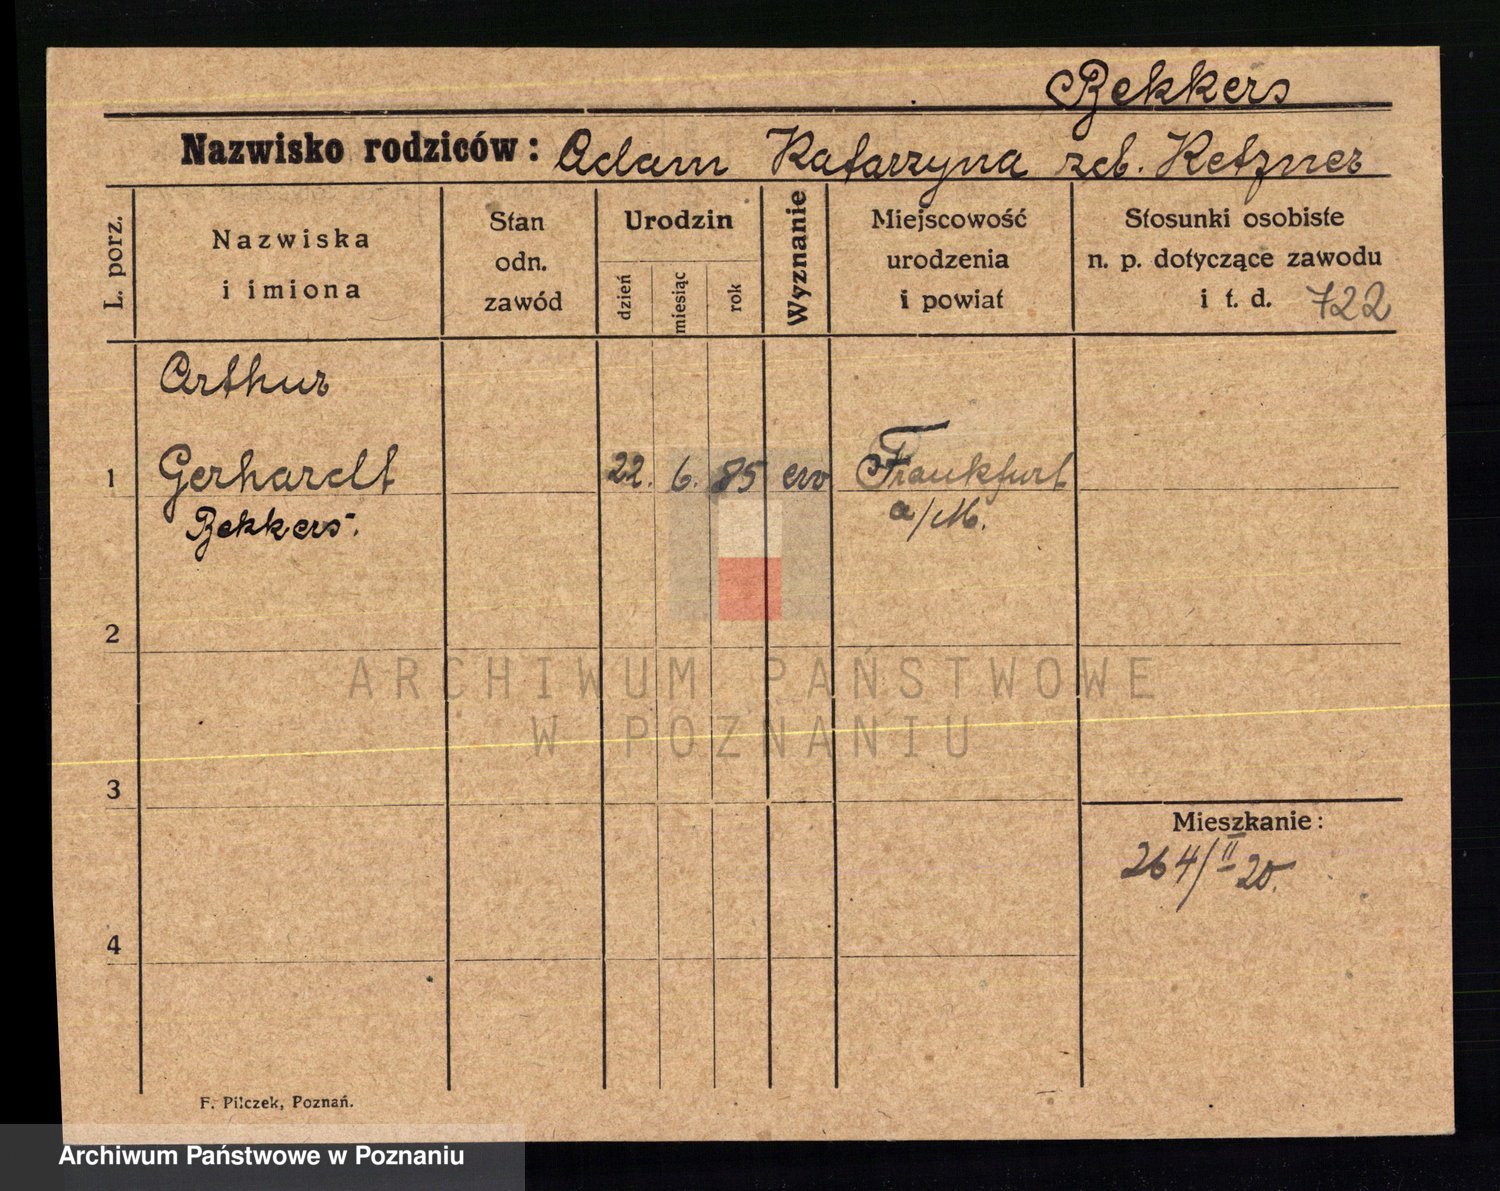 Bekkers
Nazwisko rodziców: Adam Katarzyna Ketzner
L. porz.
Nazwiska
i imiona
Stan
odn.
zawód
Urodzin
dzień
miesiąc
rok
Wyznanie
Miejscowość
urodzenia
i powiat
Stosunki osobiste
n. p. dotyczące zawodu
i t. d. 722
Arthur
1 Gerhardt 22. 6. 85 Frankfurt
Bekkers. a/M.
2
ARCHIWUM PAŃSTWOWE
W POZNANIU
3
Mieszkanie:
264/II 20.
4
F. Pilczek, Poznań.
Archiwum Państwowe w Poznaniu